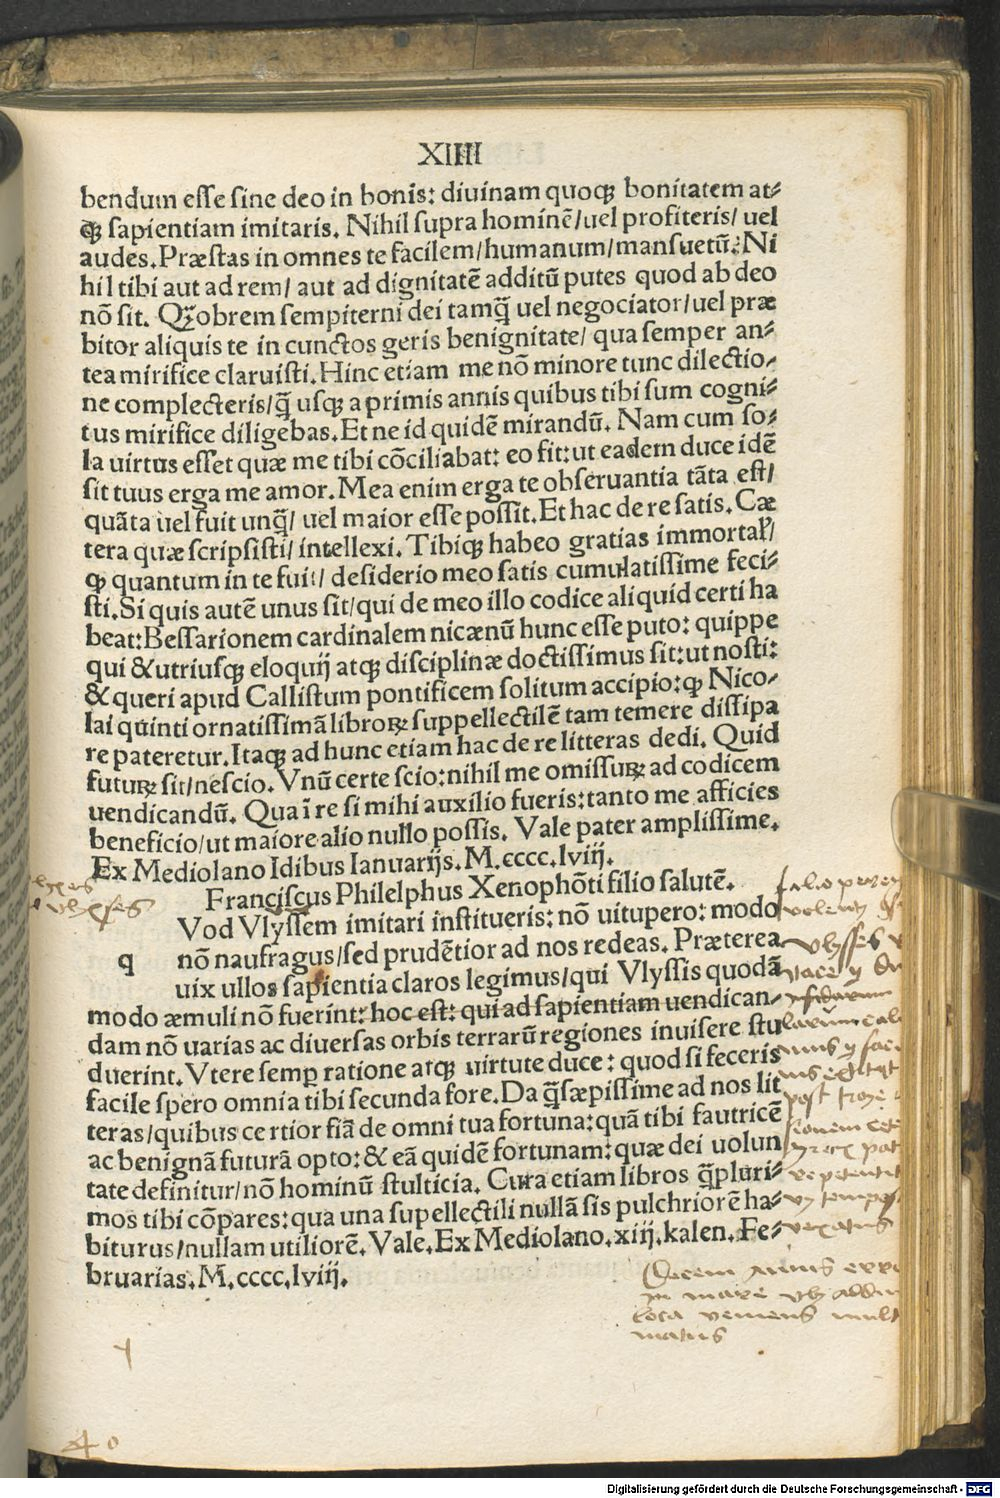 XIIII
bendum esse sine deo in bonis: diuinam quoqꝫ bonitatem at⸗
qꝫ sapientiam imitaris. Nihil supra hominē/uel profiteris/ uel
audes. Præstas in omnes te facilem/humanum/mansuetū: Ni
hil tibi aut ad rem/ aut ad dignitatē additū putes quod ab deo
nō sit. Qꝫobrem sempiterni dei tamq̄ uel negociator/uel præ
bitor aliquis te in cunctos geris benignitate/ qua semper an⸗
tea mirifice claruisti. Hinc etiam me nō minore tunc dilectio⸗
ne complecteris/q̄ usqꝫ a primis annis quibus tibi sum cogni⸗
tus mirifice diligebas. Et ne id quidē mirandū. Nam cum so⸗
la uirtus esset quæ me tibi cōciliabat: eo fit: ut eadem duce idē
sit tuus erga me amor. Mea enim erga te obseruantia tāta est/
quāta uel fuit unq̄/ uel maior esse possit. Et hac de re satis. Cæ
tera quæ scripsisti/ intellexi. Tibiqꝫ habeo gratias immortaľ/
ꝙ quantum in te fuit/ desiderio meo satis cumulatissime feci⸗
sti. Si quis autē unus sit/qui de meo illo codice aliquid certi ha
beat: Bessarionem cardinalem nicænū hunc esse puto: quippe
qui & utriusqꝫ eloquij atqꝫ disciplinæ doctissimus sit: ut nosti:
& queri apud Callistum pontificem solitum accipio: ꝙ Nico⸗
lai quinti ornatissimā libroꝝ suppellectilē tam temere dissipa
re pateretur. Itaqꝫ ad hunc etiam hac de re litteras dedi. Quid
futuꝝ sit/nescio. Vnū certe scio: nihil me omissuꝝ ad codicem
uendicandū. Qua ī re si mihi auxilio fueris: tanto me afficies
beneficio/ut maiore alio nullo possis. Vale pater amplissime.
Ex Mediolano Idibus Ianuarijs. M. cccc. lviij.
Franciscus Philelphus Xenophōti filio salutē.
Vod Vlyssem imitari institueris: nō uitupero: modo
q nō naufragus/sed prudētior ad nos redeas. Præterea
uix ullos sapientia claros legimus/qui Vlyssis quodā
modo æmuli nō fuerint: hoc est: qui ad sapientiam uendican⸗
dam nō uarias ac diuersas orbis terrarū regiones inuisere stu
duerint. Vtere semꝑ ratione atqꝫ uirtute duce: quod si feceris
facile spero omnia tibi secunda fore. Da q̄sæpissime ad nos lit
teras/quibus certior fiā de omni tua fortuna: quā tibi fautricē
ac benignā futurā opto: & eā quidē fortunam: quæ dei uolun
tate definitur/nō hominū stulticia. Cura etiam libros q̄pluri⸗
mos tibi cōpares: qua una supellectili nullā sis pulchriorē ha⸗
biturus/nullam utiliorē. Vale. Ex Mediolano. xiij. kalen. Fe⸗
bruarias. M. cccc. lviij.
vlysses
vlysses
post troye
Decem annis
in mare
loca veniens
40
Digitalisierung gefördert durch die Deutsche Forschungsgemeinschaft - DFG